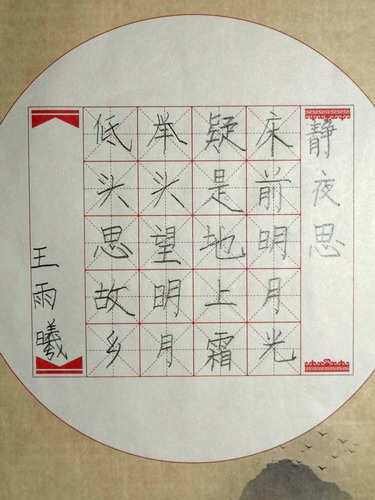 静夜思
床前明月光
疑是地上霜
举头望明月
低头思故乡
王雨曦